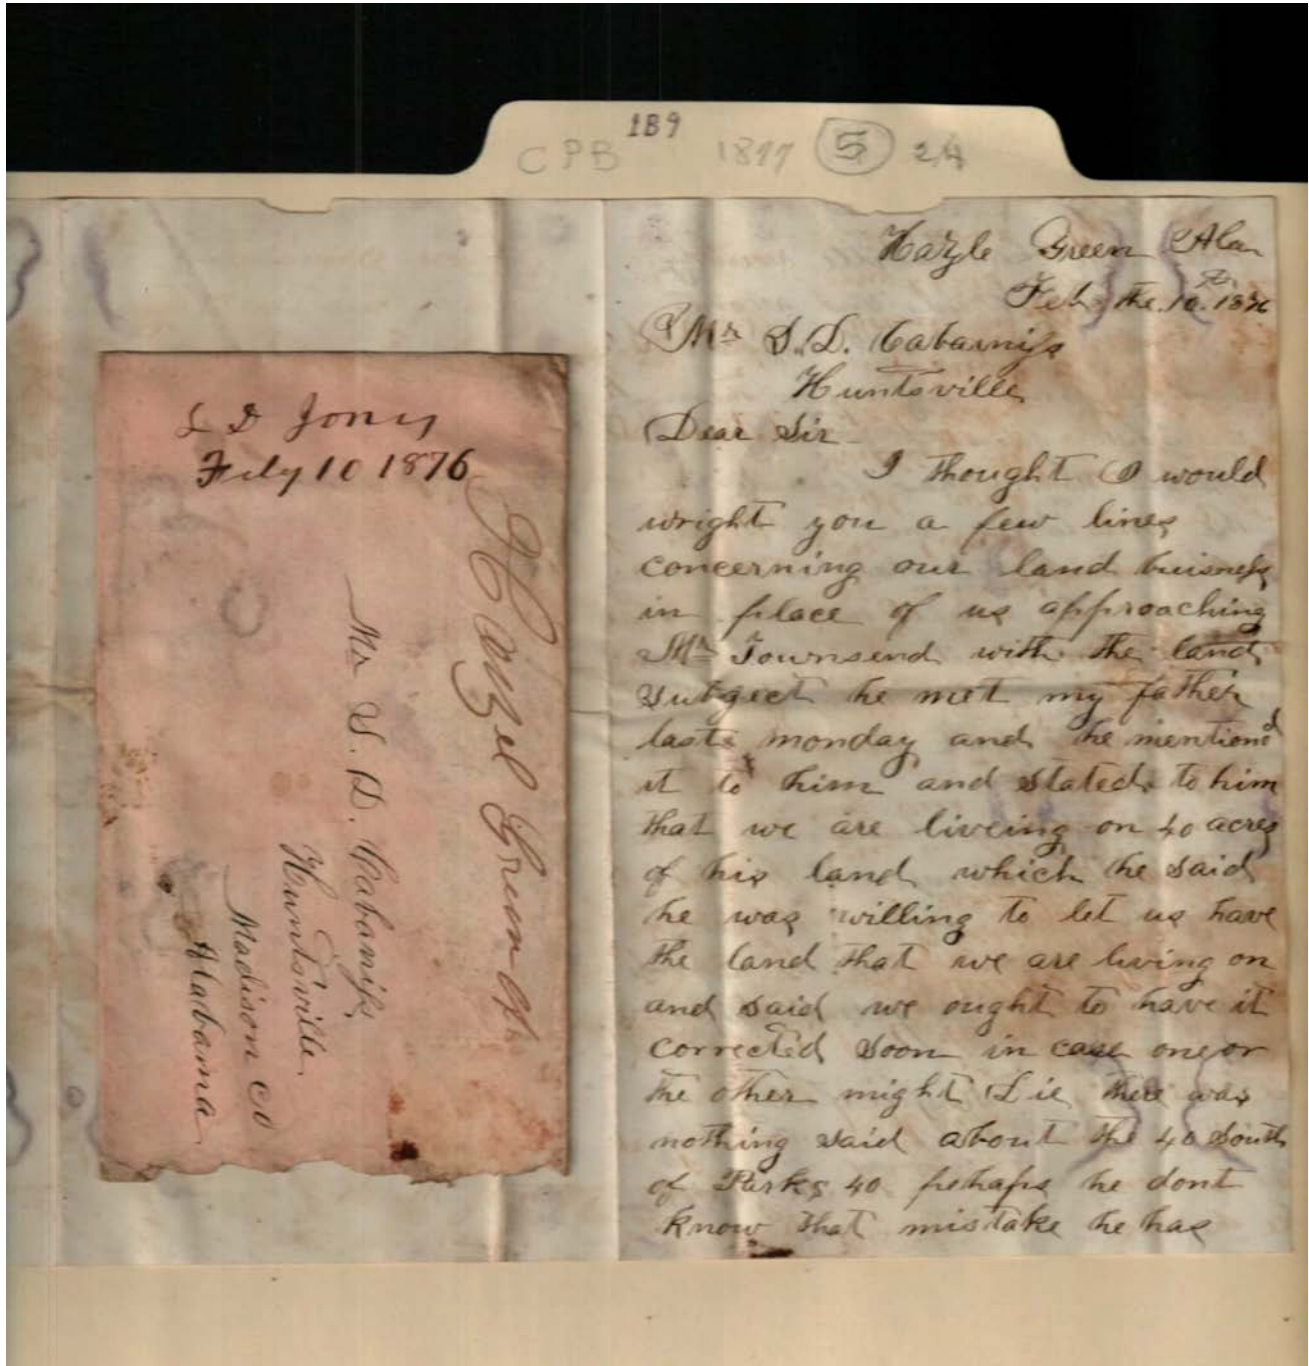 1B9
CPB 1877 5 24
L D Jones
Feby 10 1876
Hazel Green Al
Mr S. D. Cabaniss
Huntsville
Madison Co
Alabama
Hazle Green Ala
Feb the 10th 1876
Mr S. D. Cabarniss
Huntsville
Dear Sir
I thought I would
wright you a few lines
concerning our land buisness
in place of us approaching
Mr Townsend with the land
subgect he met my father
last monday and he mentiond
it to him and stated to him
that we are liveing on 40 acres
of his land which he said
he was willing to let us have
the land that we are living on
and said we ought to have it
corrected soon in case one or
the other might Die there was
nothing said about the 40 south
of Parks 40 pehaps he dont
know that mistake he has